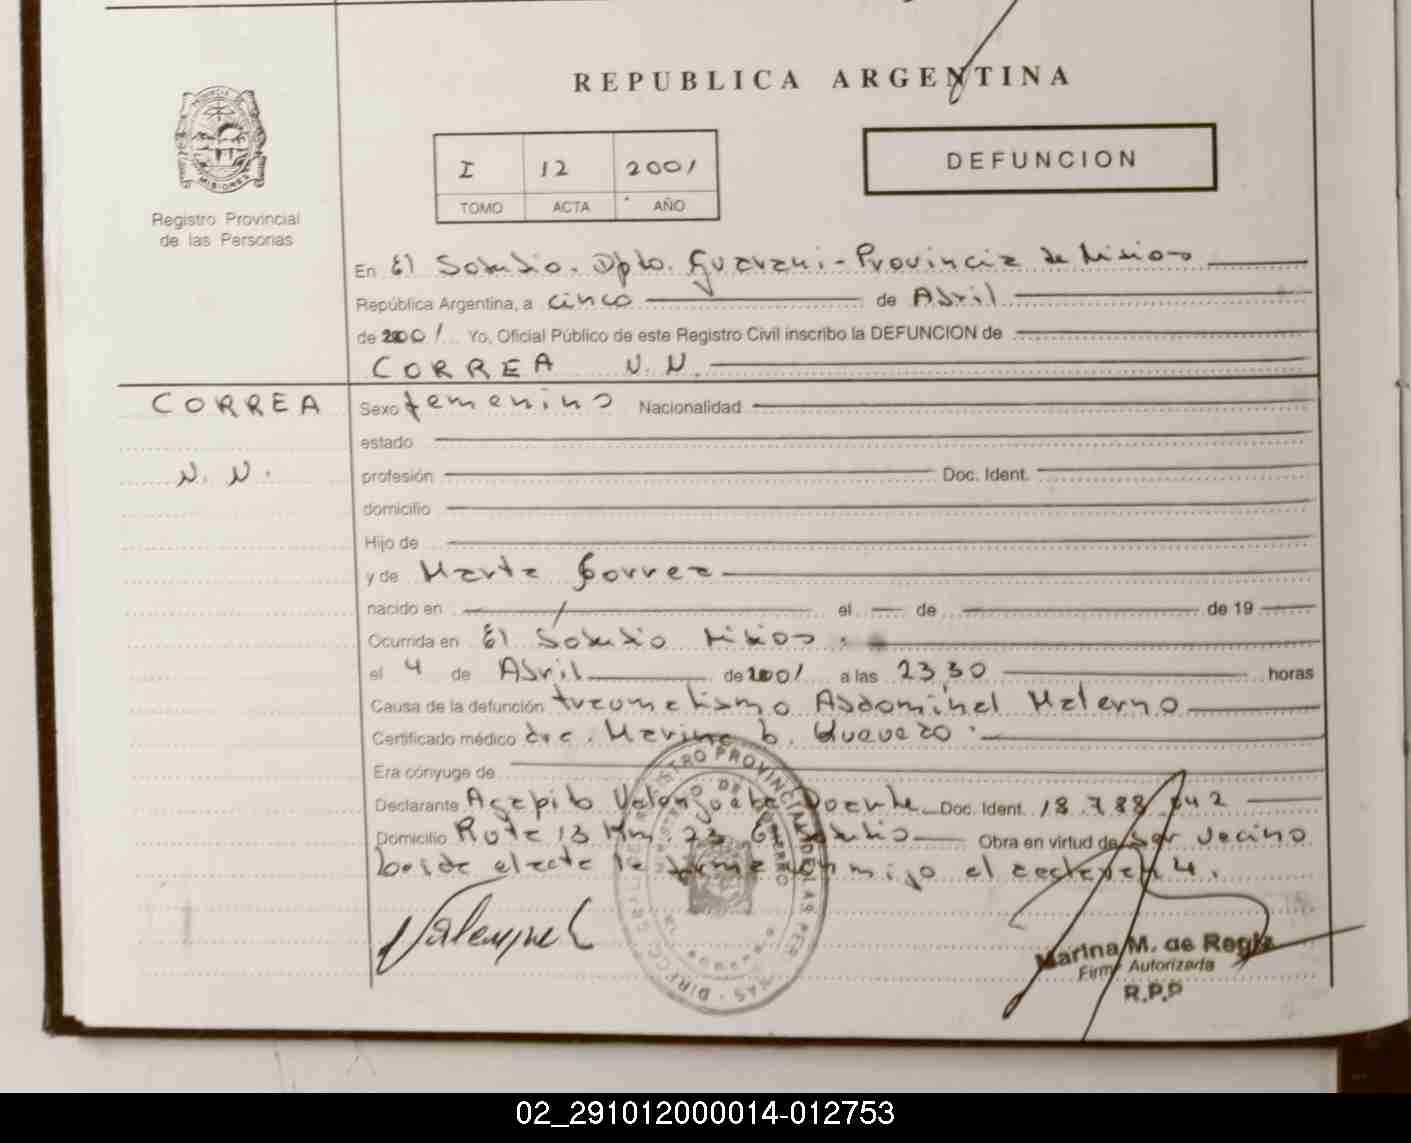 REPUBLICA ARGENTINA
PROVINCIA DE
MISIONES
Registro Provincial
de las Personas
I 12 2001
TOMO ACTA AÑO
DEFUNCION
En El Soberbio. Dpto. Guarani - Provincia de Misiones
República Argentina, a cinco de Abril
de 2001 Yo, Oficial Público de este Registro Civil inscribo la DEFUNCION de
CORREA N.N.
CORREA
N. N.
Sexo femenino Nacionalidad
estado
profesión Doc. Ident.
domicilio
Hijo de
y de Marta Correa
nacido en el de de 19
Ocurrida en El Soberbio Misiones.
el 4 de Abril de 2001 a las 23 30 horas
Causa de la defunción traumatismo Abdominal Materno
Certificado médico dra. Marina b.
Era cónyuge de
Declarante Agapito Duarte Doc. Ident. 18.788.
Domicilio Ruta 13 Km. 23 El Soberbio Obra en virtud de ser vecino
leida el acta la firma conmigo el
Marina M. de Regis
Firma Autorizada
R.P.P
02_291012000014-012753